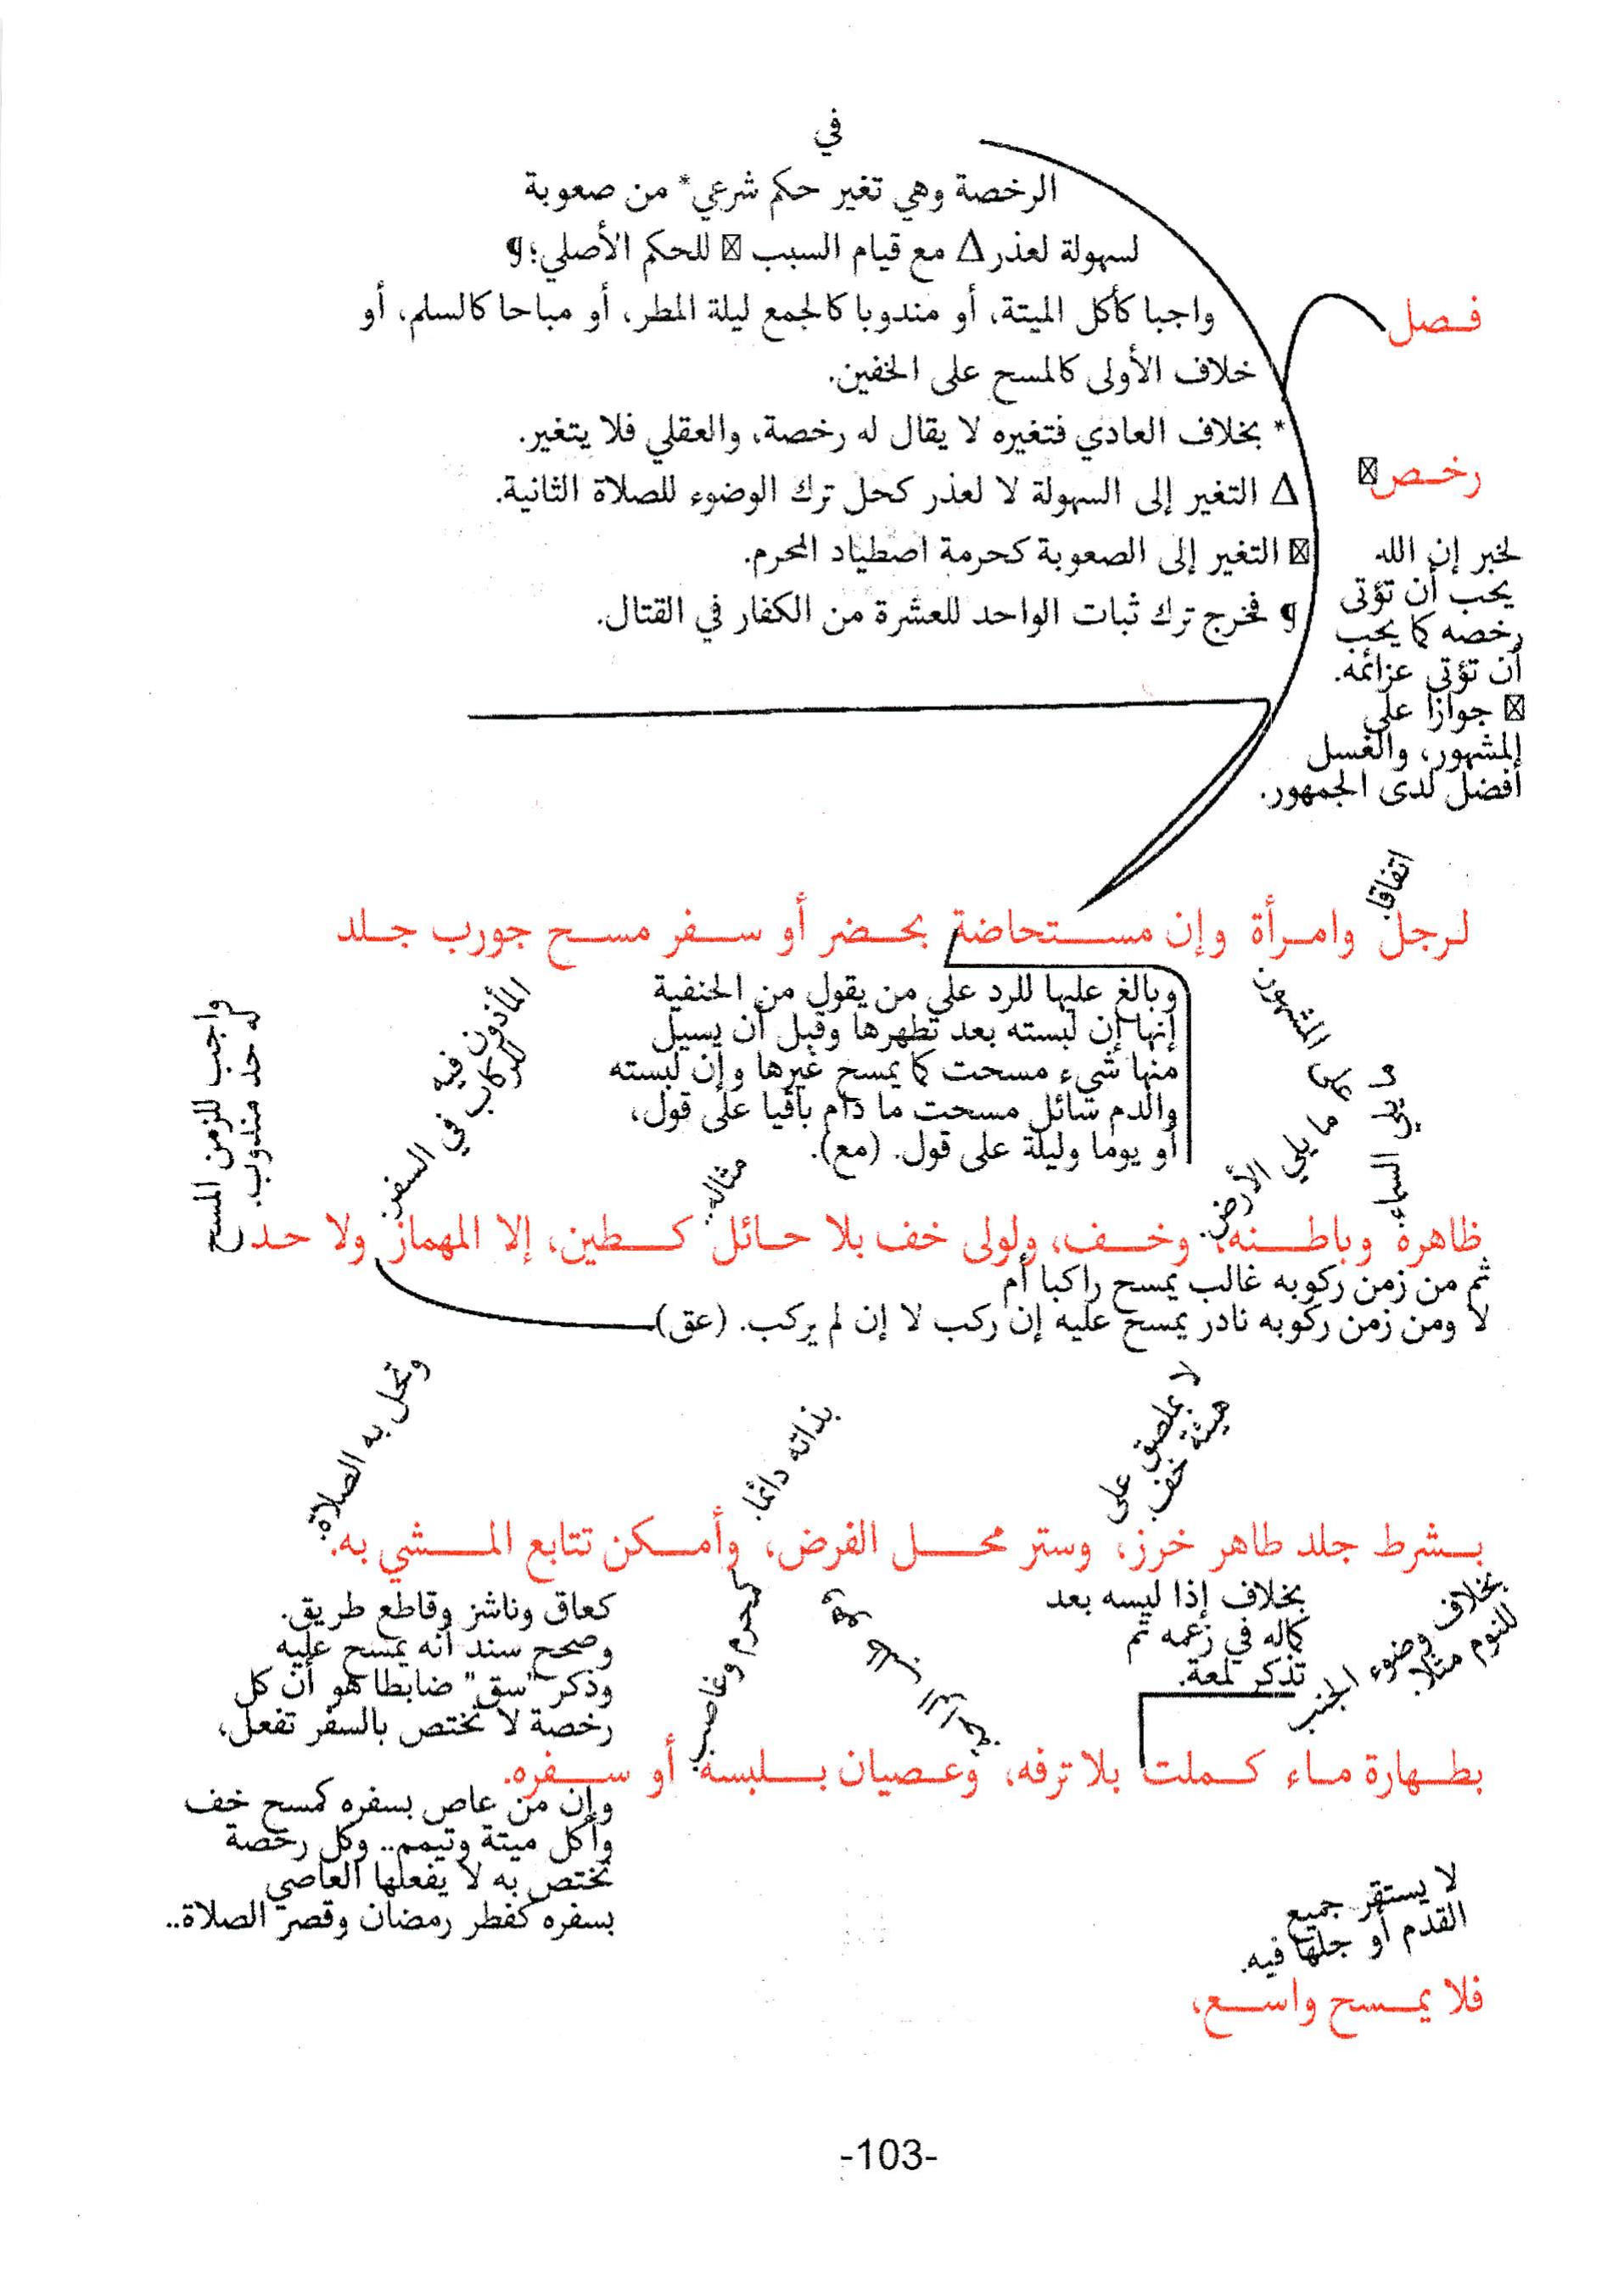 في
الرخصة وهي تغير حكم شرعي* من صعوبة
لسهولة لعذر∆ مع قيام السبب ⊠ للحكم الأصلي؛¶
واجبا كأكل الميتة، أو مندوبا كالجمع ليلة المطر، أو مباحا كالسلم، أو
خلاف الأولى كالمسح على الخفين.
* بخلاف العادي فتغيره لا يقال له رخصة، والعقلي فلا يتغير.
∆ التغير إلى السهولة لا لعذر كحل ترك الوضوء للصلاة الثانية.
⊠ التغير إلى الصعوبة كحرمة اصطياد المحرم.
¶ فخرج ترك ثبات الواحد للعشرة من الكفار في القتال.
فصل
رخص⊠
لخبر إن الله
يحب أن تؤتى
رخصه كما يحب
أن تؤتى عزائمه.
⊠ جوازا على
المشهور، والغسل
أفضل لدى الجمهور.
اتفاقا.
لرجل وامرأة وإن مستحاضة بحضر أو سفر مسح جورب جلد
وبالغ عليها للرد على من يقول من الحنفية
إنها إن لبسته بعد تطهرها وقبل أن يسيل
منها شيء مسحت كما يمسح غيرها وإن لبسته
والدم سائل مسحت ما دام باقيا على قول،
أو يوما وليلة على قول. (مع).
على المشهور.
ما يلي السماء.
ما يلي الأرض.
مثاله..
المأذون فيه
للركاب في السفر.
واجب للزمن المسح
له حد مندوب.
ظاهره وباطنه، وخف، ولولى خف بلا حائل كطين، إلا المهماز ولا حد
ثم من زمن ركوبه غالب يمسح راكبا أم
لا ومن زمن ركوبه نادر يمسح عليه إن ركب لا إن لم يركب. (عق)
لا بملصق على
هيئة خف.
بذاته دائما.
وتحل به الصلاة.
بشرط جلد طاهر خرز، وستر محل الفرض، وأمكن تتابع المشي به.
بخلاف وضوء الجنب
للنوم مثلا.
بخلاف إذا لبسه بعد
كماله في زعمه ثم
تذكر لمعة.
كمحرم وغاصب
كعاق وناشز وقاطع طريق.
وصحح سند أنه يمسح عليه
وذكر "سق" ضابطا هو أن كل
رخصة لا تختص بالسفر تفعل،
بطهارة ماء كملت بلا ترفه، وعصيان بلبسه أو سفره.
وإن من عاص بسفره كمسح خف
وأكل ميتة وتيمم.. وكل رخصة
تختص به لا يفعلها العاصي
بسفره كفطر رمضان وقصر الصلاة..
لا يستقر جميع
القدم أو جلها فيه.
فلا يمسح واسع،
-103-